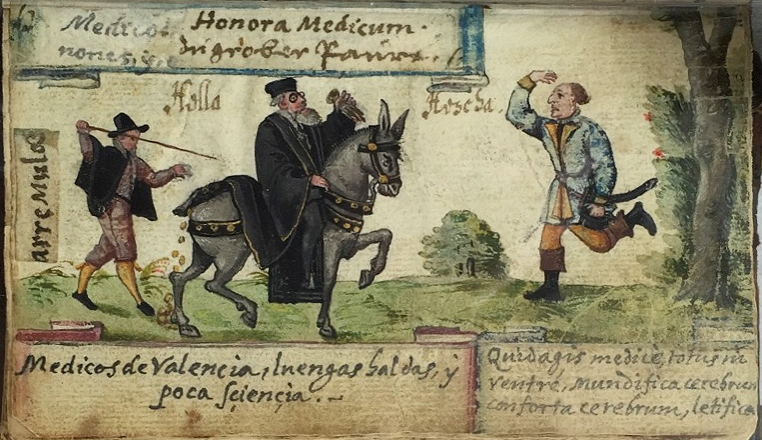 Medicos Honora Medicum.
nones, y, e Ein grober Paur.
Hella
Hescha.
arre Mulos
Medicos de Valencia, luengas haldas, y
poca sçiençia. -
Quid agis medice, totus in
ventre, Mundifica cerebrum
conforta cerebrum, letifica